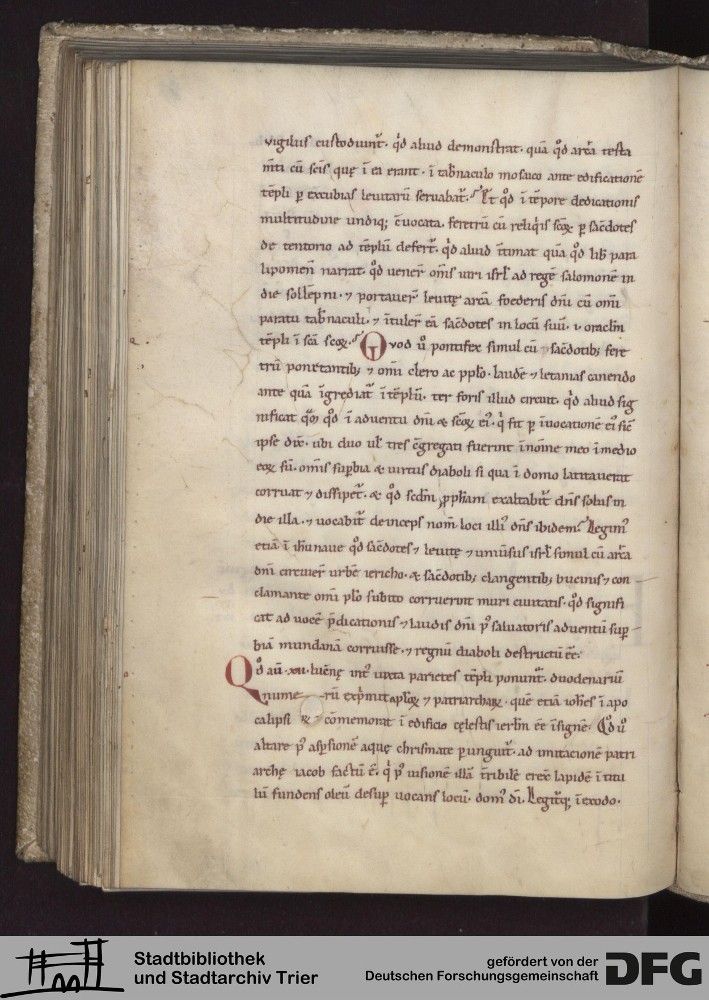 vigiliis custodiunt̄· qd̄ aliud demonstrat· quā qd̄ arca testa
m̄ti cū sc̄is quę ī ea erant· ī tab̄naculo mosaico ante edificationē
tēpli p excubias leuitarū seruabat̄· Et qd̄ ī tēpore dedicationis
multitudine undiq; cuocata· feretrū cū reliq̄is sc̄oꝝ p sac̄dotes
de tentorio ad tēplū defert̄· qd̄ aliud ītimat quā qd̄ lib̄ para
lipomeń narrat· qd̄ uener̄ om̄s uiri isrl̄ ad regē salomonē in
die sollēpni· ⁊ portauer̄ leuitę arcā foederis dn̄i cū om̄i
paratu tab̄naculi· ⁊ ītuler̄ eā sac̄dotes in locū suū· i· oraclm̄
tēpli ī sc̄a sc̄oꝝ· Quod ů pontifex simul cū sac̄dotib; fere
trū portantib; ⁊ om̄i clero ac pplo· laudē ⁊ letanias canendo
ante quā īgrediat̄ ītēplū· ter foris illud circuit· qd̄ aliud sig
nificat qd̄ ī aduentu dn̄i & sc̄oꝝ ei'· q̄ fit p īuocationē ei' sic̄
ipse dix̄· ubi duo ul̄ tres c̄gregati fuerint īnoīne meo īmedio
eoꝝ sū· om̄is supbia & uirtus diaboli si qua ī domo latitauerit
corruat ⁊ dissipet̄· & qd̄ scdm̄ pphām exaltabit̄ dn̄s solus in
die illa· ⁊ uocabit̄ deinceps nom̄ loci illi' dn̄s ibidem· Legim'
etiā ī ih̄unaue qd̄ sac̄dotes ⁊ leuitę ⁊ uniūsus isrl̄ simul cū arca
dn̄i circuier̄ urbē iericho· & sac̄dotib; clangentib; bucinis ⁊ con
clamante om̄i plo subito corruerint muri ciuitatis· qd̄ signifi
cat ad uocē p̄dicationis ⁊ laudis dn̄i p' saluatoris aduentū sup
biā mundanā corruisse· ⁊ regnū diaboli destructū eē·
Qd̄ aū· xii· lucernę int' iuxta parietes tēpli ponunt̄· duodenariū
numerū exp̄mit aplo̅ꝝ ⁊ patriarchaꝝ· quē etiā ioh̄es ī apo
calipsi cōmemorat ī edificio cęlestis ierlm̄ eē īsignē· Qd̄ ů
altare p' aspsionē aquę chrismate punguit̄· ad imitacionē patri
archę iacob factū ē· q̄ p' uisionē illā t̄ribilē erexit lapidē ī titu
lū fundens oleū desup uocans locū· dom' dī· Legitq; īexodo·
Stadtbibliothek
und Stadtarchiv Trier
gefördert von der
Deutschen Forschungsgemeinschaft
DFG